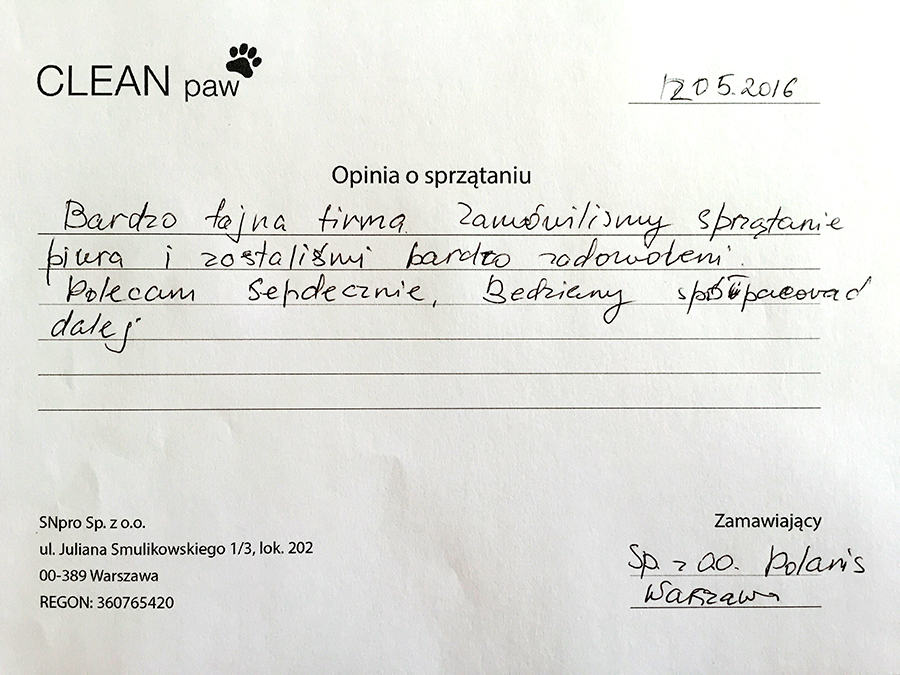 CLEAN paw
12 05.2016
Opinia o sprzątaniu
Bardzo fajna firma. Zamówilismy sprzątanie
biura i zostališmi bardzo zadowoleni.
Polecam serdecznie, Bedziemy spółpacovać
dalej
SNpro Sp. z o.o.
ul. Juliana Smulikowskiego 1/3, lok. 202
00-389 Warszawa
REGON: 360765420
Zamawiający
Sp. z o.o. Polanis
Warszawa